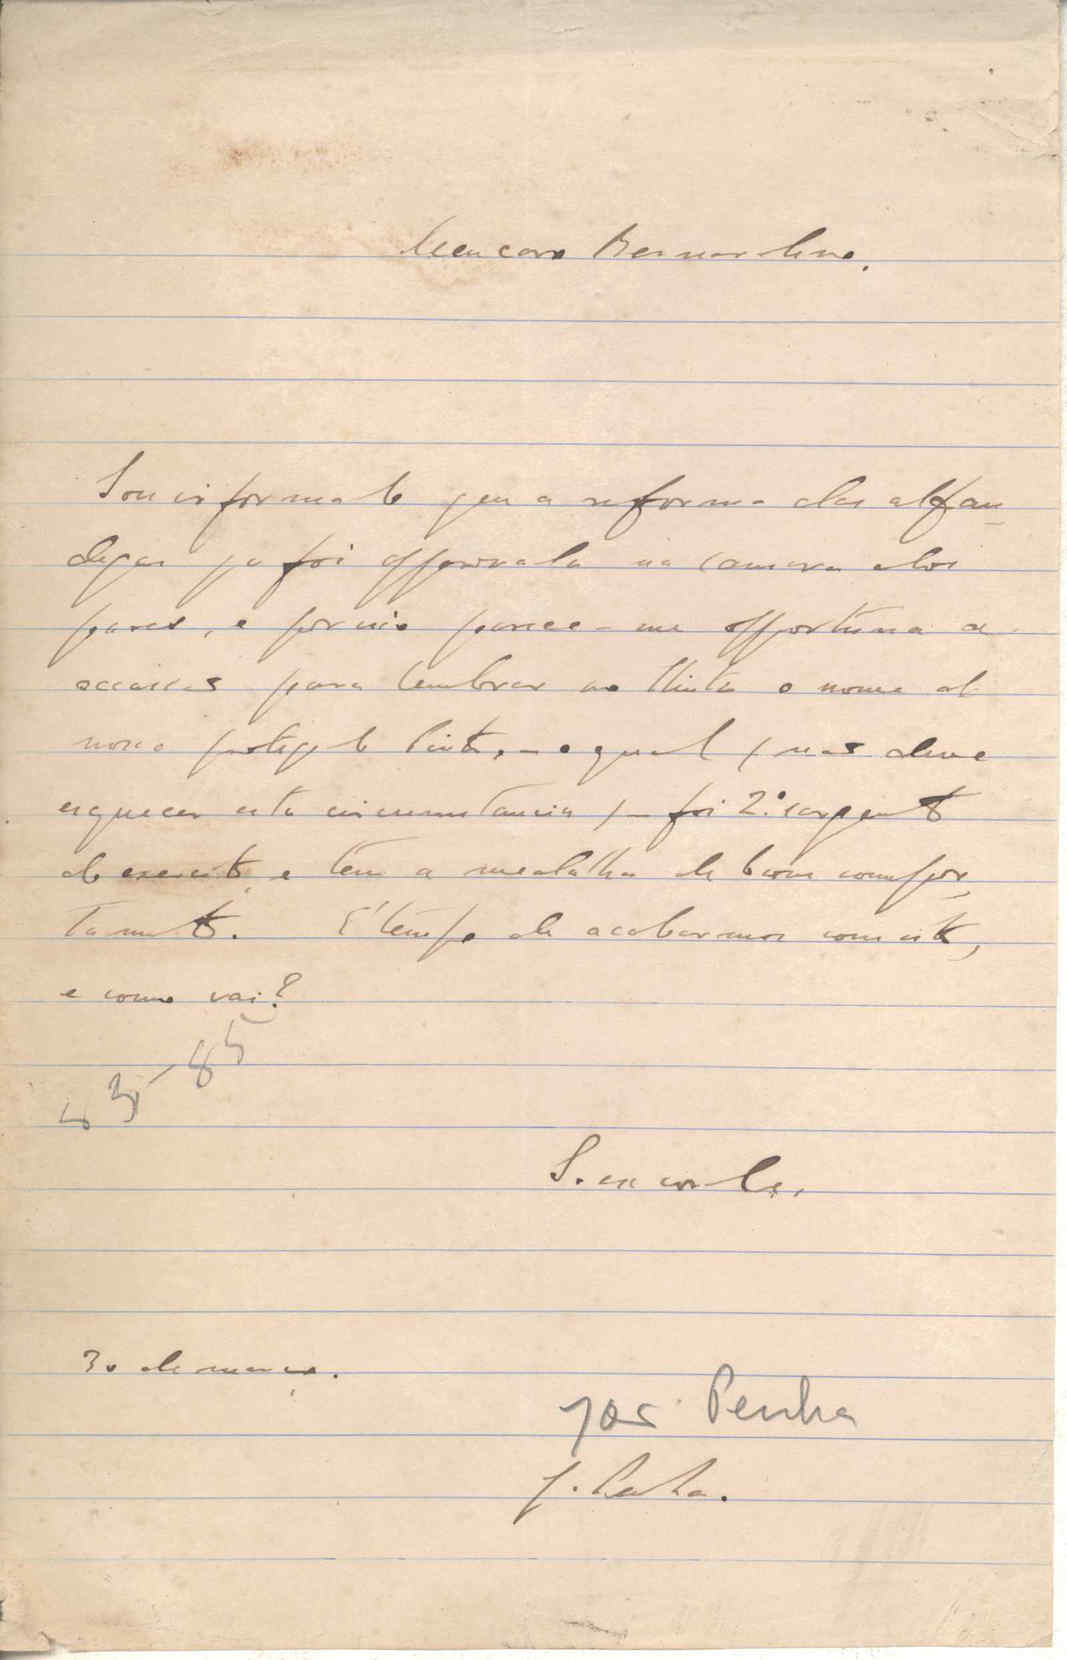 Meu caro Bernardino.
Sou informado que a reforma das alfan-
degas ja foi approvada na camara dos
pares, e por isso parece-me opportuna a
occasião para lembrar ao Hintze o nome do
nosso protegido Pinto, - o qual (não deve
esquecer esta circumstancia) - foi 2.º sargento
do exercito, e tem a medalha de bom compor-
tamento. E' tempo de acabarmos com isto,
e como vai?
85
S. casa
30 de março.
José Penha
J. Penha.